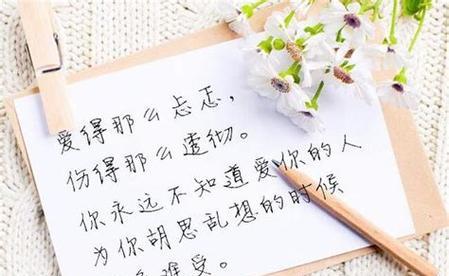 爱得那么忐忑，
伤得那么透彻。
你永远不知道爱你的人
为你胡思乱想的时候
难受。